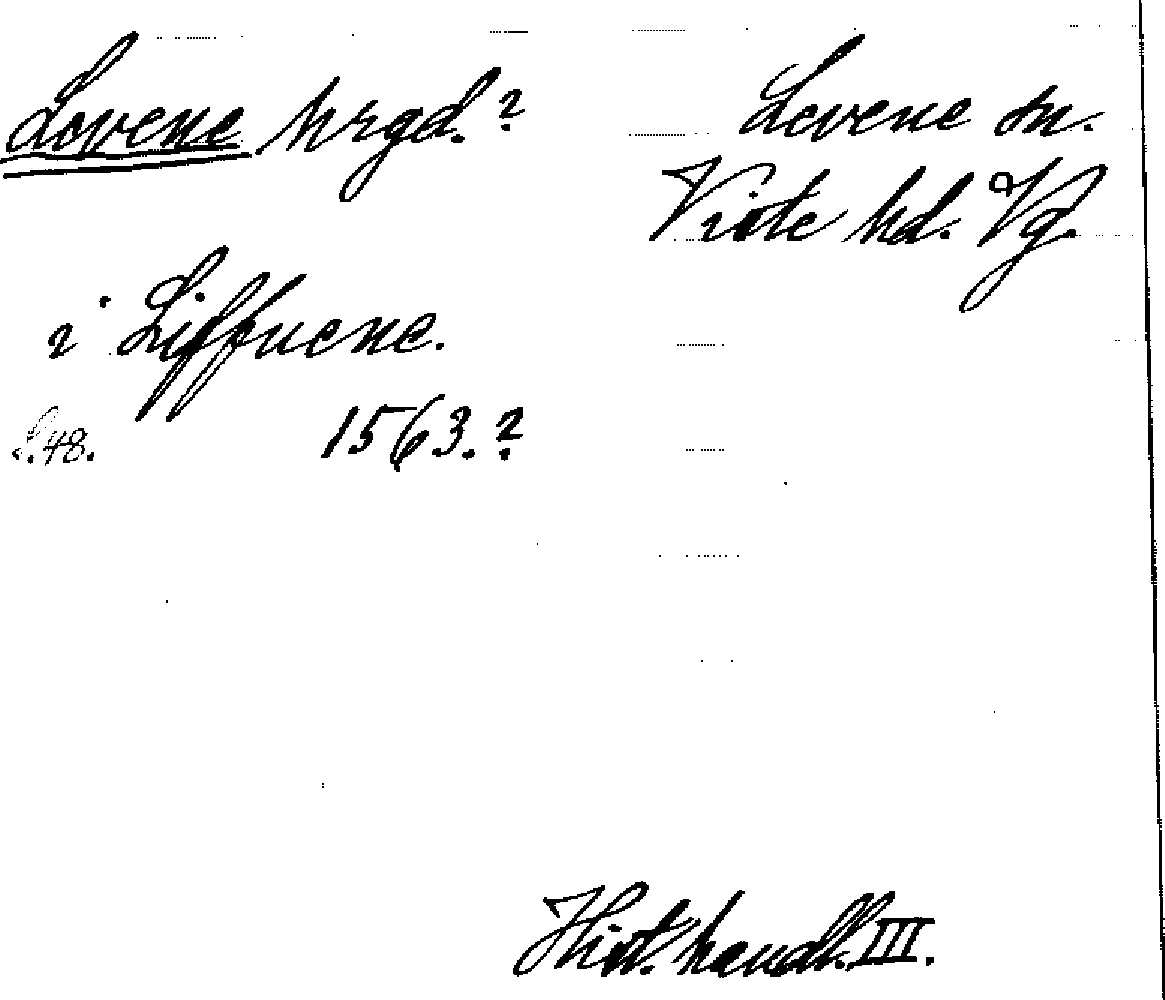 Levene hrgd.?
Levene sn.
Viste hd. Vg.
i Liffuene.
S. 48.
1563.?
Hist. handl. III.